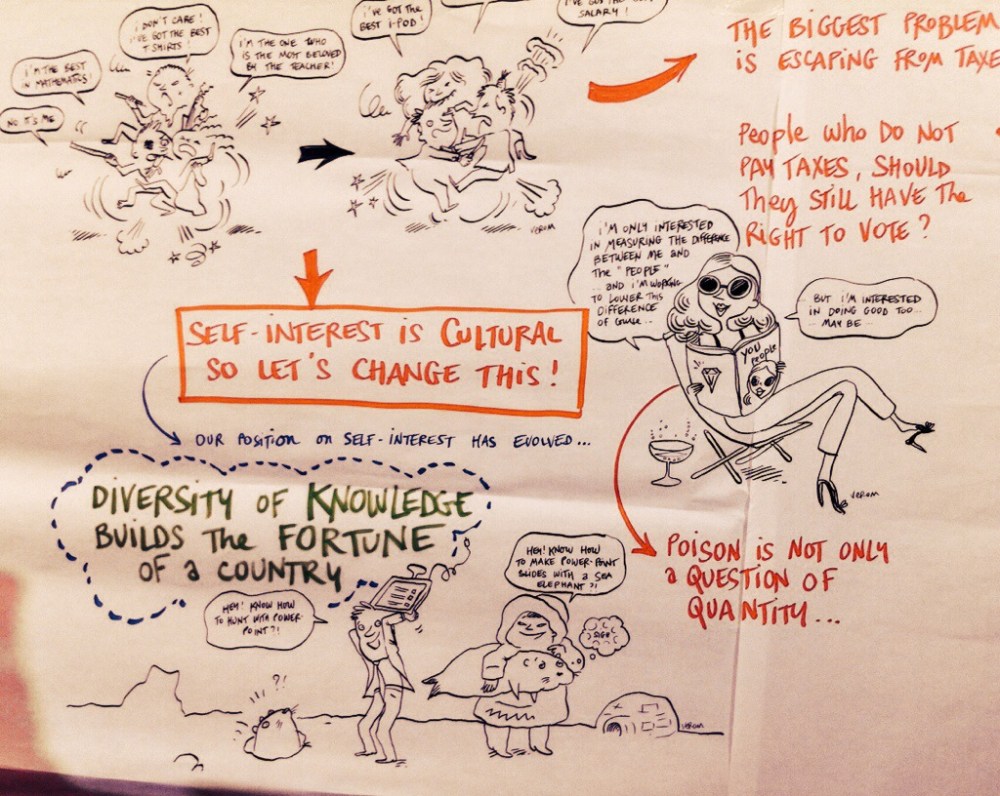 I DON'T CARE!
I'VE GOT THE BEST
T SHIRTS!
I'M THE BEST
IN MATHEMATICS!
NO IT'S ME
I'M THE ONE WHO
IS THE MOST BELOVED
BY THE TEACHER!
I'VE GOT THE
BEST I-POD!
I'VE GOT THE
SALARY!
VEROM
THE BIGGEST PROBLEM
IS ESCAPING FROM TAXE
PEOPLE WHO DO NOT
PAY TAXES, SHOULD
THEY STILL HAVE THE
RIGHT TO VOTE?
I'M ONLY INTERESTED
IN MEASURING THE DIFFERENCE
BETWEEN ME AND
THE "PEOPLE"
... AND I'M WORKING
TO LOWER THIS
DIFFERENCE
OF COURSE...
BUT I'M INTERESTED
IN DOING GOOD TOO...
MAY BE...
YOU
PEOPLE
VEROM
SELF-INTEREST IS CULTURAL
SO LET'S CHANGE THIS!
OUR POSITION ON SELF-INTEREST HAS EVOLVED...
DIVERSITY OF KNOWLEDGE
BUILDS THE FORTUNE
OF A COUNTRY
POISON IS NOT ONLY
A QUESTION OF
QUANTITY...
HEY! KNOW HOW
TO HUNT WITH POWER-
POINT?!
HEY! KNOW HOW
TO MAKE POWER-POINT
SLIDES WITH A SEA
ELEPHANT?!
?!
VEROM